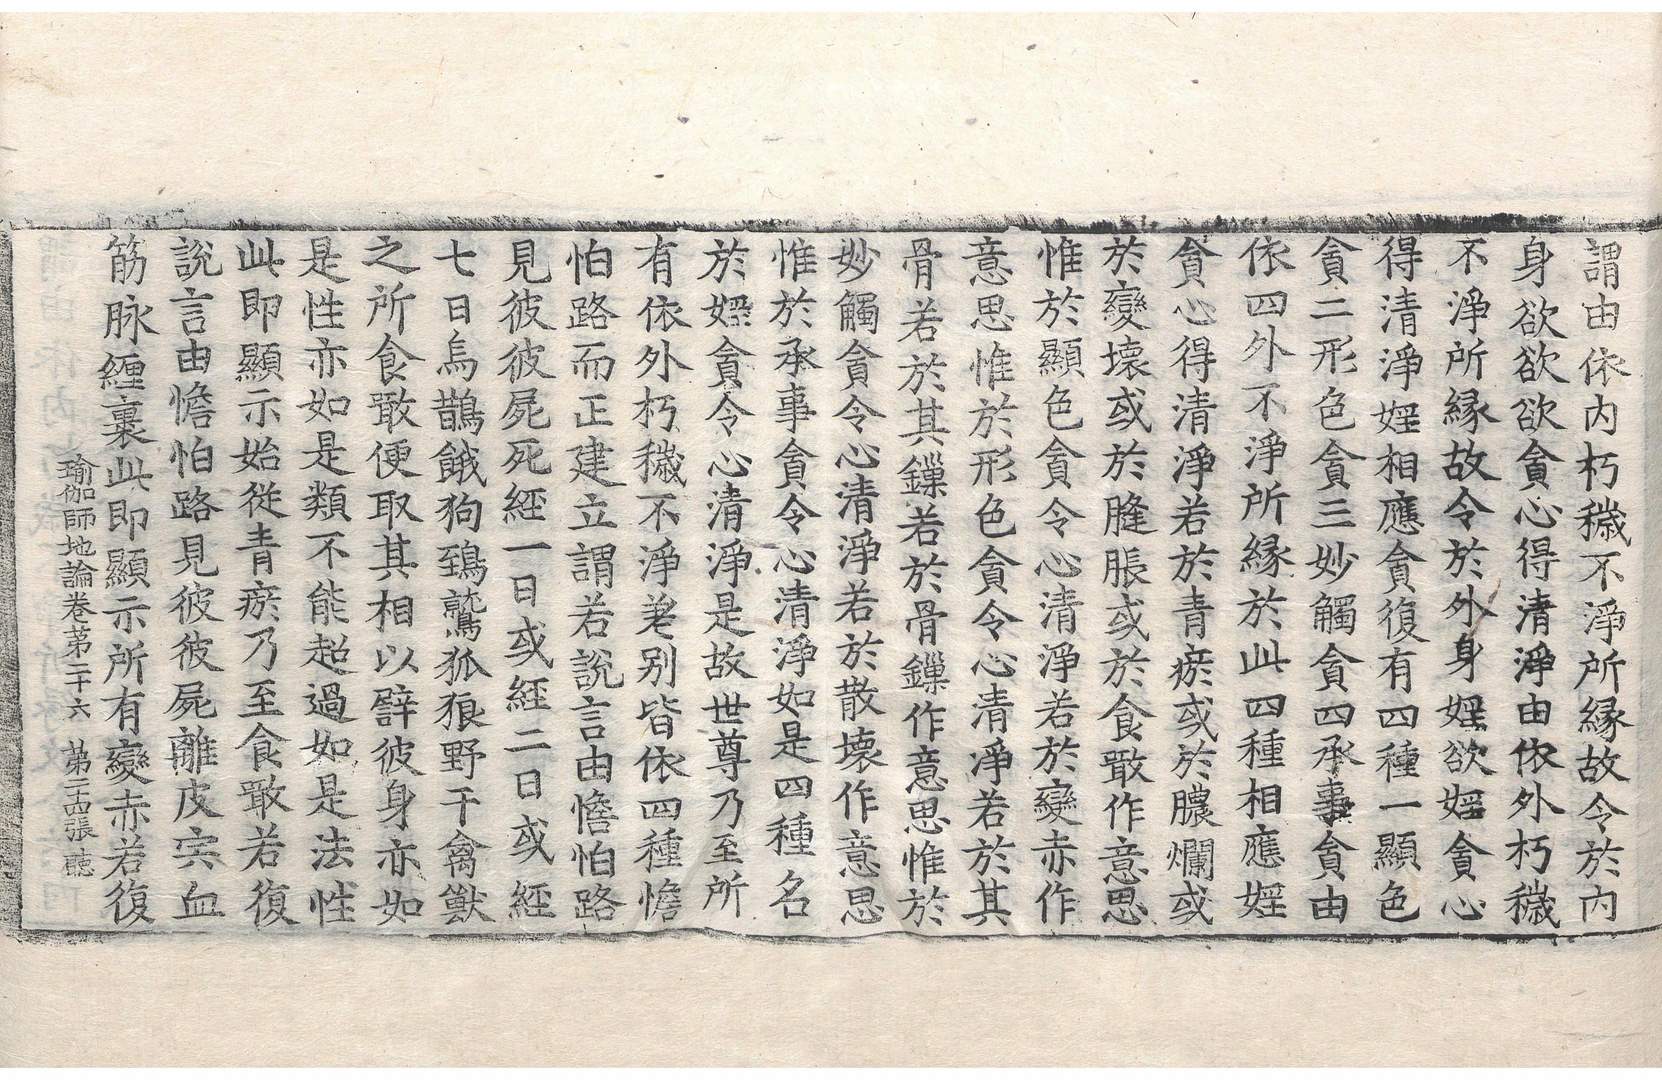 謂由依内朽穢不淨所縁故令於内
身欲欲欲貪心得清淨由依外朽穢
不淨所縁故令於外身婬欲婬貪心
得清淨婬相應貪復有四種一顯色
貪二形色貪三妙觸貪四承事貪由
依四外不淨所縁於此四種相應婬
貪心得清淨若於青瘀或於膿爛或
於變壞或於膖脹或於食噉作意思
惟於顯色貪令心清淨若於變赤作
意思惟於形色貪令心清淨若於其
骨若於其鏁若於骨鏁作意思惟於
妙觸貪令心清淨若於散壞作意思
惟於承事貪令心清淨如是四種名
於婬貪令心清淨是故世尊乃至所
有依外朽穢不淨差别皆依四種憺
怕路而正建立謂若說言由憺怕路
見彼彼屍死經一日或經二日或經
七日烏鵲餓狗鵄鷲狐狼野干禽獸
之所食噉便取其相以譬彼身亦如
是性亦如是類不能超過如是法性
此即顯示始從青瘀乃至食噉若復
說言由憺怕路見彼彼屍離皮宍血
筋脉纏裹此即顯示所有變赤若復
瑜伽師地論卷第二十六 第二十四張 聴